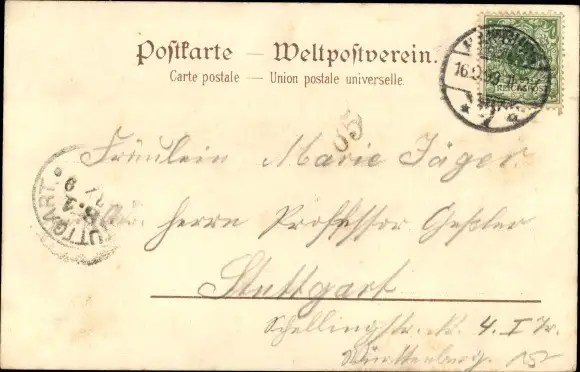 Postkarte — Weltpostverein.
Carte postale — Union postale universelle.
REICHSPOST
65
Fräulein Marie Jäger
Herrn Professor Geßler
Stuttgart
Schellingstr. 4. I Tr.
Württemberg.
STUTTGART